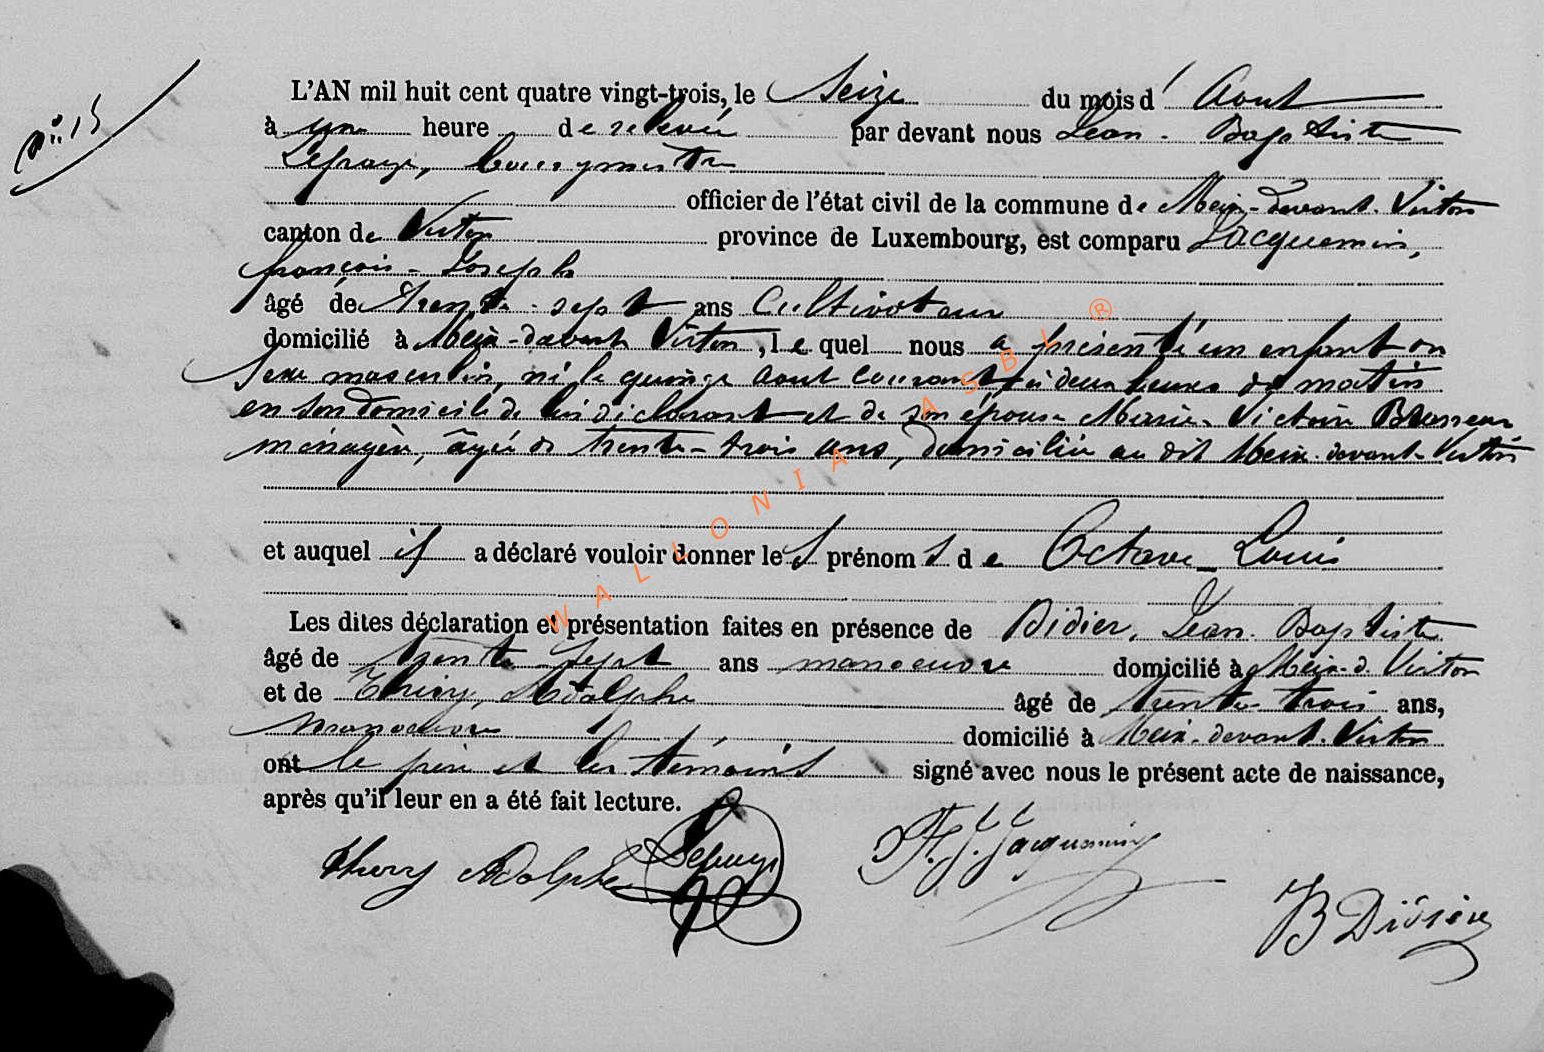 N° 15
L'AN mil huit cent quatre vingt-trois, le Seize du mois d' Aout
à une heure de relevée par devant nous Jean-Baptiste
Lefraye, bourgmestre
officier de l'état civil de la commune de Meix-devant-Virton
canton de Virton province de Luxembourg, est comparu Jacquemin,
françois-Joseph
âgé de trente-sept ans Cultivateur
domicilié à Meix-devant Virton, le quel nous a présenté un enfant du
Sexe masculin, né le quinze aout courant, à deux heures du matin
en son domicile de lui déclarant et de son épouse Marie-Victoire Brasseur
ménagère, âgée de trente-trois ans, domiciliée au dit Meix-devant-Virton
et auquel il a déclaré vouloir donner les prénoms de Octave-Louis
Les dites déclaration et présentation faites en présence de Didier, Jean-Baptiste
âgé de trente-sept ans manoeuvre domicilié à Meix-d. Virton
et de Thiry, Adolphe âgé de trente trois ans,
manoeuvre domicilié à Meix-devant-Virton
ont le père et les témoins signé avec nous le présent acte de naissance,
après qu'il leur en a été fait lecture.
Thiery Adolphe F. J. Jacquemin
JB Didier
WALLONIA ASBL ®